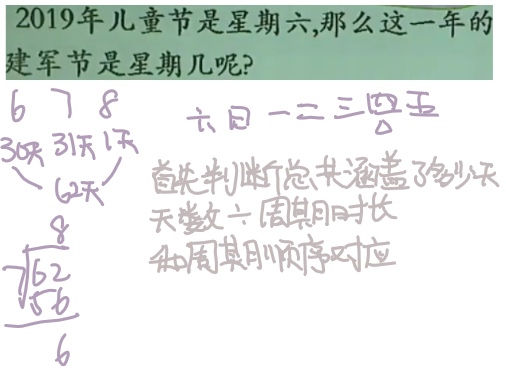 2019年儿童节是星期六,那么这一年的
建军节是星期几呢?
6 7 8
30天 31天 1天
62天
8
7 62
56
6
六日一二三四五
首先判断总共涵盖了多少天
天数÷周期时长
和周期顺序对应